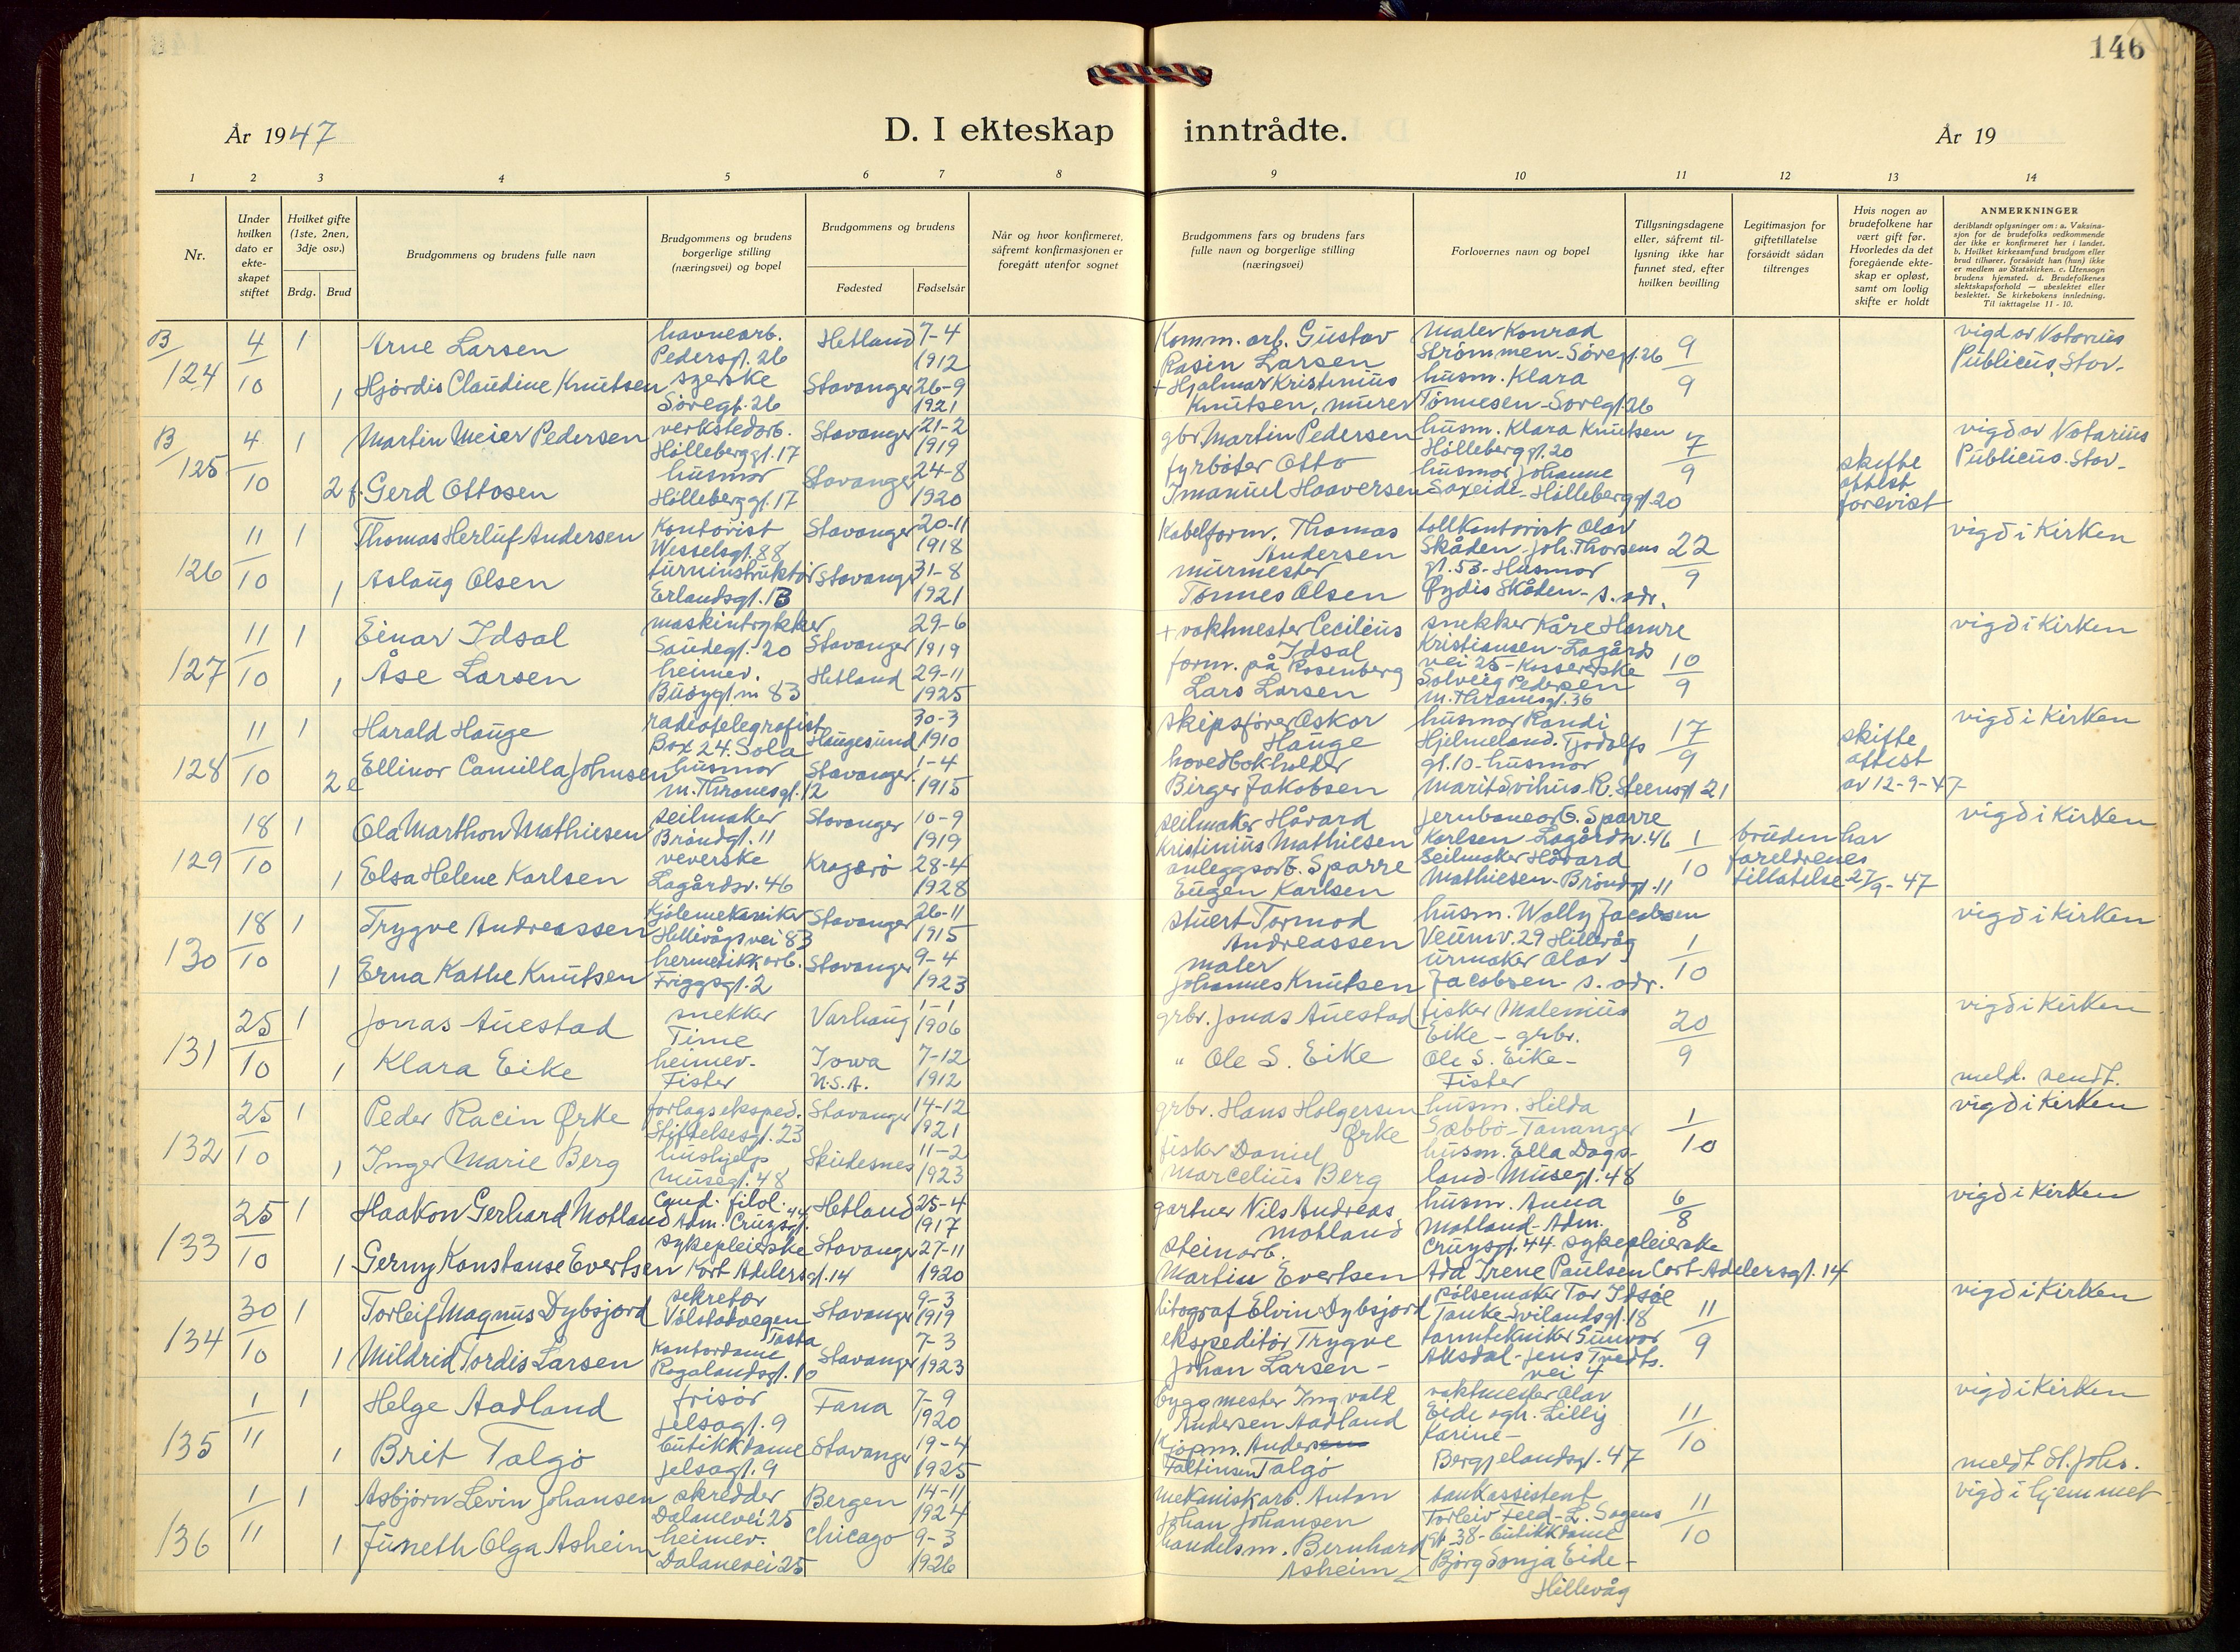 146
År 1947
D. I ekteskap inntrådte.
År 19
1 2 3 4 5 6 7 8 9 10 11 12 13 14
Nr.
Under hvilken dato er ekte- skapet stiftet
Hvilket gifte (1ste, 2nen, 3dje osv.)
Brdg. Brud
Brudgommens og brudens fulle navn
Brudgommens og brudens borgerlige stilling (næringsvei) og bopel
Brudgommens og brudens
Fødested Fødselsår
Når og hvor konfirmeret, såfremt konfirmasjonen er foregått utenfor sognet
Brudgommens fars og brudens fars fulle navn og borgerlige stilling (næringsvei)
Forlovernes navn og bopel
Tillysningsdagene eller, såfremt til- lysning ikke har funnet sted, efter hvilken bevilling
Legitimasjon for giftetillatelse forsåvidt sådan tiltrenges
Hvis nogen av brudefolkene har vært gift før. Hvorledes da det foregående ekte- skap er opløst, samt om lovlig skifte er holdt
ANMERKNINGER
deriblandt oplysninger om: a. Vaksina- sjon for de brudefolks vedkommende der ikke er konfirmeret her i landet. b. Hvilket kirkesamfund brudgom eller brud tilhører, forsåvidt han (hun) ikke er medlem av Statskirken. c. Utensogn brudens hjemsted. d. Brudefolkenes slektskapsforhold — ubeslektet eller beslektet. Se kirkebokens innledning. Til iakttagelse 11 - 10.
B/124 4/10 1 Arne Larsen havnearb. Pedersgt. 26 Hetland 7-4 1912
1 Hjördis Claudine Knutsen syerske Söregt. 26 Stavanger 26-9 1921
Komm. arb. Gustav Rasin Larsen
+ Hjalmar Kristinius Knutsen, murer
maler Konrad Strömmen - Söregt. 26
husm. Klara Tönnesen - Söregt. 26
9/9
vigd av Notarius Publicus, Stav.
B/125 4/10 1 Martin Meier Pedersen verkstedarb. Hölleberggt. 17 Stavanger 21-2 1919
2 f. Gerd Ottosen husmor Hölleberggt. 17 Stavanger 24-8 1920
gbr. Martin Pedersen
fyrböter Otto Imanuel Haaversen
husm. Klara Knutsen Hölleberggt. 20
husmor Johanne Saxeide - Hölleberggt 20
7/9
skifte attest forevist
vigd av Notarius Publicus. Stav.
126 11/10 1 Thomas Herluf Andersen Kontorist Wesselsgt. 88 Stavanger 20-11 1918
1 Aslaug Olsen turninstruktör Erlandsgt. 13 Stavanger 31-8 1921
Kabelform. Thomas Andersen
murmester Tönnes Olsen
tollkontorist Olav Skåden - Joh. Thorsens gt. 53 - Husmor
Öydis Skåden - s. adr.
22/9
vigd i Kirken
127 11/10 1 Einar Idsal maskintrykker Saudegt. 20 Stavanger 29-6 1919
1 Åse Larsen heimev. Buøygt. m 83 Hetland 29-11 1925
+ vaktmester Cecilius Idsal
form. på Rosenberg Lars Larsen
snekker Kåre Hamre Kristiansen - Lagårds vei 25 - Kassererske
Solveig Pedersen M. Thranesgt. 36
10/9
vigd i Kirken
128 11/10 1 Harald Hauge radiotelegrafist Box 24. Sola Haugesund 30-3 1910
2 e Ellinor Camilla Johnsen husmor M. Thranesgt. 12 Stavanger 1-4 1915
skipsförer Oskar Hauge
hovedbokholder Birger Jakobsen
husmor Randi Hjelmeland. Tjodolfs gt. 10 - husmor
Marit Svihus - R. Steensgt 21
17/9
skifte attest av 12-9-47
vigd i Kirken
129 18/10 1 Ola Marthon Mathiesen seilmaker Bröndgt. 11 Stavanger 10-9 1919
1 Elsa Helene Karlsen veverske Lagårdsv. 46 Kragerö 28-4 1928
seilmaker Håvard Kristinius Mathiesen
anleggsarb. Sparre Eugen Karlsen
jernbanearb. Sparre Karlsen - Lagårdsv. 46
Seilmaker Håvard Mathiesen - Bröndgt. 11
1/10
bruden har foreldrenes tillatelse 27/9-47
vigd i Kirken
130 18/10 1 Trygve Andreassen Kjölemekaniker Hillevågsvei 83 Stavanger 26-11 1915
1 Erna Kathe Knutsen hermetikkarb. Friggsgt. 2 Stavanger 9-4 1923
stuert Tormod Andreassen
maler Johannes Knutsen
husm. Wally Jacobsen Veumv. 29 Hillevåg
urmaker Olav Jacobsen - s. adr.
1/10
vigd i Kirken
131 25/10 1 Jonas Auestad snekker Time Varhaug 1-1 1906
1 Klara Eike heimev. Fister Iowa U.S.A. 7-12 1912
grbr. Jonas Auestad
" Ole S. Eike
fisker Malenius Eike - grbr.
Ole S. Eike - Fister
20/9
vigd i Kirken
meld. sendt.
132 25/10 1 Peder Racin Ørke forlagseksped. Stiftelsesgt. 23 Stavanger 14-12 1921
1 Inger Marie Berg hushjelp Musegt. 48 Skudesnes 11-2 1923
grbr. Hans Holgersen Ørke
fisker Daniel Marcelius Berg
husm. Hilda Sæbbö - Tananger
husm. Ella Dagsland - Musegt. 48
1/10
vigd i Kirken
133 25/10 1 Haakon Gerhard Motland Cand. filol. Adm. Cruysgt. 44 Hetland 25-4 1917
1 Gerny Konstanse Evertsen sykepleierske Kort Adelersgt. 14 Stavanger 27-11 1920
gartner Nils Andreas Motland
steinarb. Martin Evertsen
husm. Anna Motland - Adm. Cruysgt. 44. sykepleierske
Ada Irene Paulsen Cort Adelersgt. 14
6/8
vigd i Kirken
134 30/10 1 Torleif Magnus Dybsjord sekretær Vålstadvegen Tasta Stavanger 9-3 1919
1 Mildrid Tordis Larsen Kontordame Rogalandsgt. 10 Stavanger 7-3 1923
litograf Elvin Dybsjord
ekspeditör Trygve Johan Larsen -
pölsemaker Tor Idsöe Tanke-Svilandsgt. 18
tanntekniker Gunvor Aksdal - Jens Tvedts. vei 4
11/9
vigd i Kirken
135 1/11 1 Helge Aadland frisör Jelsagt. 9 Fana 7-9 1920
1 Brit Talgö butikkdame Jelsagt. 9 Stavanger 19-4 1925
byggmester Ingvald Andersen Aadland
Kjöpm. Andersen Faltinsen Talgö
vaktmester Olav Eide ogh. Lilly Karine - Bergjelandsgt. 47
11/10
vigd i Kirken
meldt St. Johs.
136 1/11 1 Asbjörn Levin Johansen skredder Dalanevei 25 Bergen 14-11 1924
1 Juneth Olga Asheim heimev. Dalanevei 25 Chicago 9-3 1926
mekaniskarb. Anton Johan Johansen
handelsm. Bernhard Asheim
bankassistent Torleiv Feed - L. Sagens gt. 38 - butikkdame
Björg Sonja Eide - Hillevåg
11/10
vigd i hjemmet